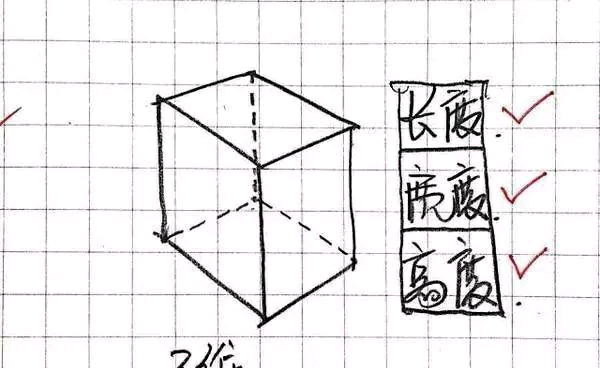 长度.
宽度.
高度.